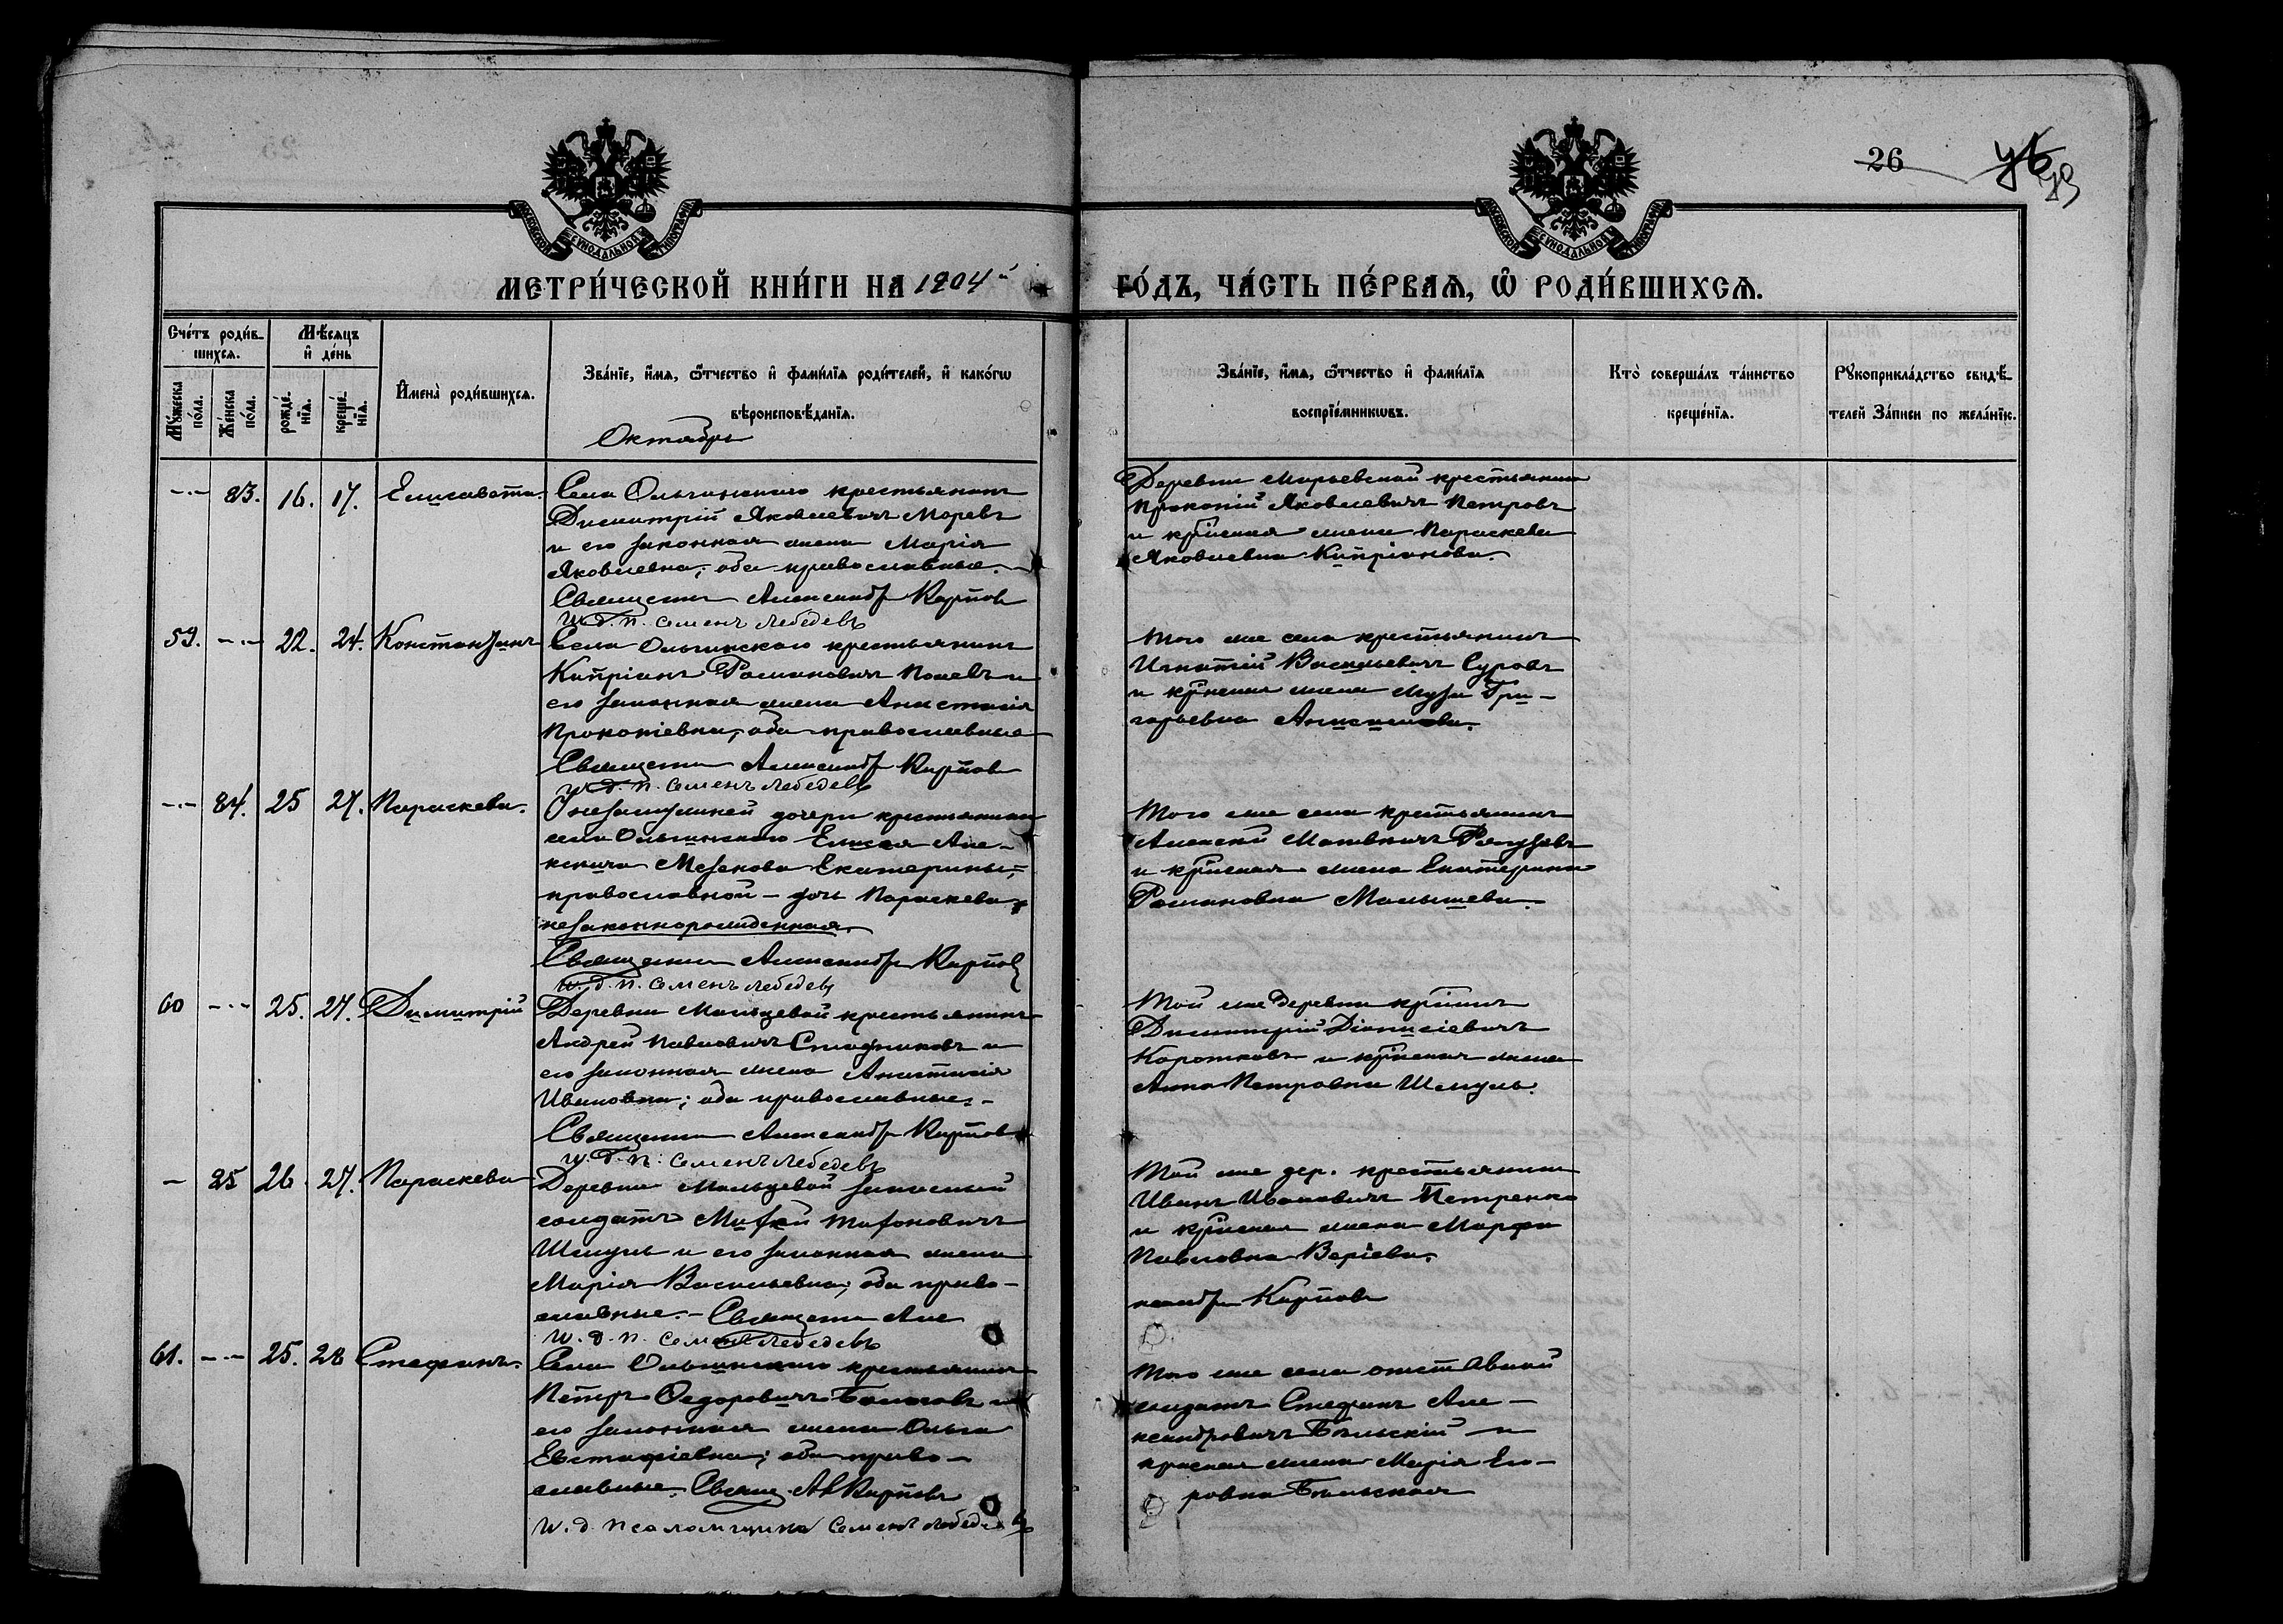 26
МОСКОВСКОЙ СѴНОДАЛЬНОЙ ТИПОГРАФІИ
МОСКОВСКОЙ СѴНОДАЛЬНОЙ ТИПОГРАФІИ
МЕТРИ́ЧЕСКОЙ КНИ́ГИ НА 1904й ГО́ДЪ, ЧА́СТЬ ПЕ́РВАѦ, Ѽ РОДИ́ВШИХСѦ.
Сче́тъ роди́в-
шихсѧ.
Мѣ́сѧцъ
и҆ де́нь
Мꙋ́жеска
по́ла.
Же́нска
по́ла.
рожде́-
нїѧ.
креще́-
нїѧ.
И҆мена̀ роди́вшихсѧ.
Зва́нїе, и҆́мѧ, ѻ҆́тчество и҆ фами́лїѧ роди́телей, и҆ како́гѡ
вѣроисповѣ́данїѧ.
Зва́нїе, и҆́мѧ, ѻ҆́тчество и҆ фами́лїѧ
воспрїе́мникѡвъ.
Кто̀ соверша́лъ та́инство
креще́нїѧ.
Рꙋкоприкла́дство свидѣ́-
телей За́писи по жела́нїю.
Октябрь
-·- 83. 16. 17. Елисавета.
Села Ольгинскаго крестьянинъ
Димитрій Яковлевичъ Моревъ
и его законная жена Марія
Яковлевна; оба православные.
Священникъ Александръ Карповъ
И. д. п. Семенъ Лебедевъ
Деревни Марьевской крестьянинъ
Прокопій Яковлевичъ Петровъ
и кр̃нская жена Параскева
Яковлевна Кипріанова.
59. -·- 22. 24. Константинъ
Села Ольгинскаго крестьянинъ
Кипріанъ Романовичъ и
его законная жена Анастасія
Прокопіевна; оба православные
Священникъ Александръ Карповъ
И. д. п. Семенъ Лебедевъ
Того же села крестьянинъ
Игнатій Васильевичъ Суровъ
и кр̃нская жена Муза Гри-
горьевна
-·- 84. 25 27. Параскева.
У незамужней дочери крестьянина
села Ольгинскаго Елисея Але-
ксеича Екатерины,
православной - дочь Параскева,
незаконнорожденная.
Священникъ Александръ Карповъ
И. д. п. Семенъ Лебедевъ
Того же села крестьянинъ
Алексѣй
и кр̃нская жена Екатерина
Романовна Малышева.
60 -·- 25. 27. Димитрій
Деревни Мальцевой крестьянинъ
Андрей Павловичъ и
его законная жена Анастасія
Ивановна; оба православные.-
Священникъ Александръ Карповъ
И. д. п. Семенъ Лебедевъ
Той же деревни кр̃нинъ
Димитрій Діонисіевичъ
Коротковъ и кр̃нская жена
Анна Петровна Шемуль.
- 85 26 27. Параскева
Деревни Мальцевой запасный
солдатъ
Шемуль и его законная жена
Марія Васильевна; оба право-
славные.- Священникъ Але
И. д. п. Семенъ Лебедевъ
Той же дер. крестьянинъ
Иванъ Ивановичъ Петренко
и кр̃нская жена Марфа
Павловна
ксандръ Карповъ
61. -·- 25. 28 Стефанъ.
Села Ольгинскаго крестьянинъ
Петръ Ѳедоровичъ и
его законная жена Ольга
Евстафіевна; оба право-
славные. Свящ. Ал Карповъ
И. д. псаломщика Семенъ Лебедевъ
Того же села отставной
солдатъ Стефанъ Але-
ксандровичъ Бѣльскій и
кр̃нская жена Марія Его-
ровна Бѣльская